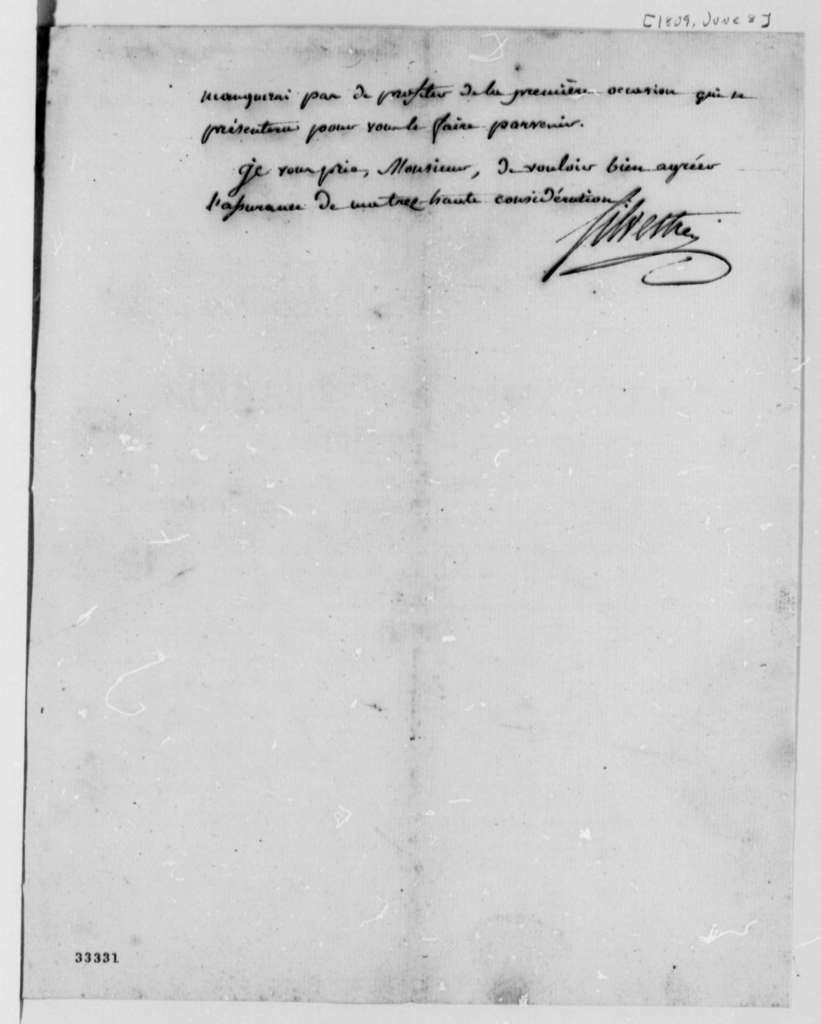 [1809, June 8]
manquerai pas de profiter de la première occasion qui se
présentera pour vous le faire parvenir.
je vous prie, Monsieur, de vouloir bien agréer
l'assurance de ma très haute considération.
Silvestre
33331